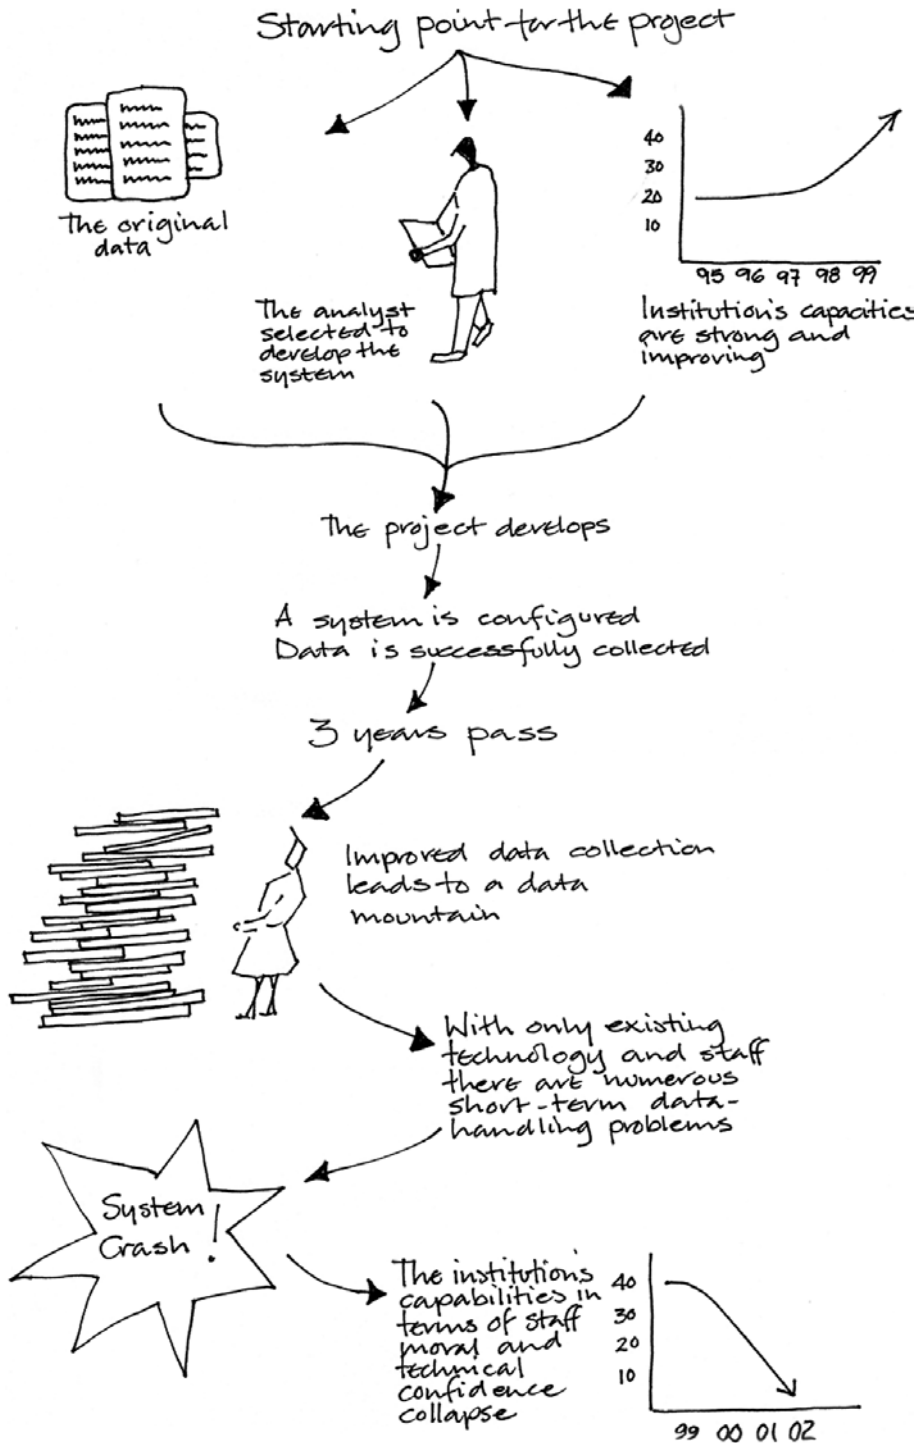 Starting point for the project
The original
data
The analyst
selected to
develop the
system
40
30
20
10
95 96 97 98 99
Institution's capacities
are strong and
improving
The project develops
A system is configured
Data is successfully collected
3 years pass
Improved data collection
leads to a data
mountain
With only existing
technology and staff
there are numerous
short-term data-
handling problems
System
Crash !
The institution's
capabilities in
terms of staff
moral and
technical
confidence
collapse
40
30
20
10
99 00 01 02